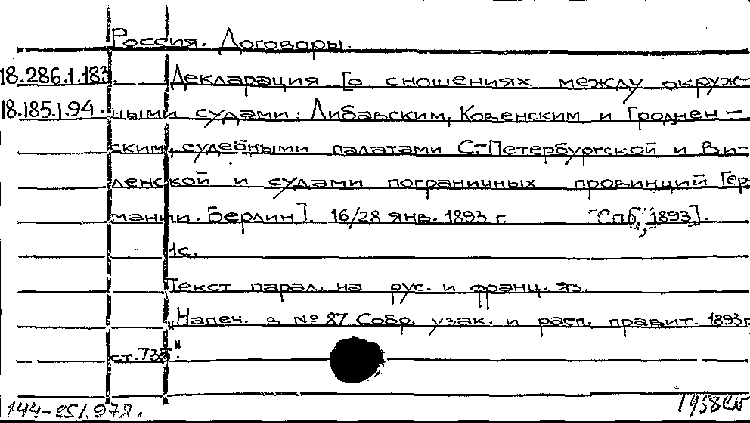 Россия. Договоры.
18.286.1.183. Декларация [о сношениях между окруж-
18.185.1.94. ными судами: Либавским, Ковенским и Гроднен-
ским, судебными палатами С-Петербургской и Ви-
ленской и судами пограничных провинций Гер
мании. Берлин]. 16/28 янв. 1893 г. [Спб., 1893].
1с.
Текст парал. на рус. и франц. яз.
"Напеч. в № 87 Собр. узак. и расп. правит. 1893г
ст. 735."
144-25/.